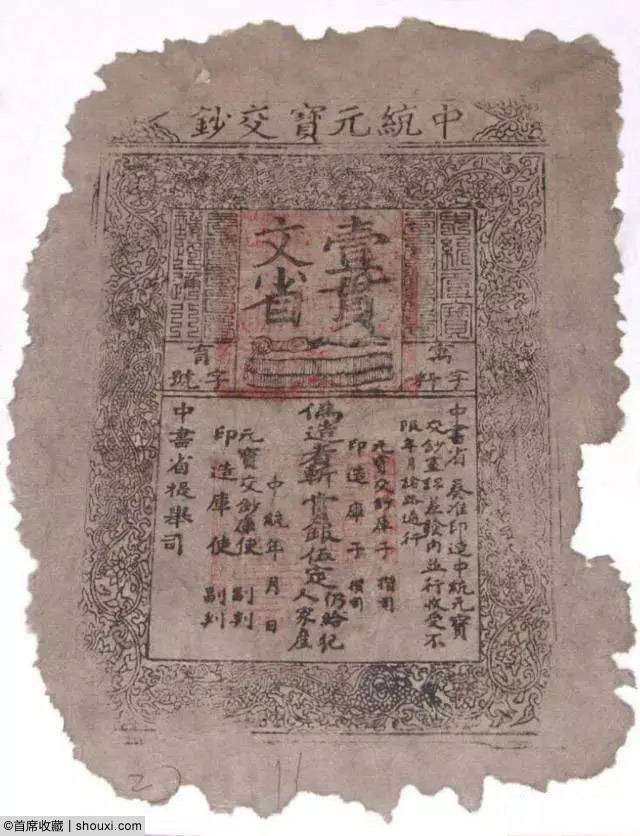 中統元寶交鈔
壹貫
文省
中統元寶
諸路通行
字料
育字號
中書省奏准印造中統元寶
交鈔宣課差發內並行收受不
限年月諸路通行
元寶交鈔庫子 攢司
印造庫子 攢司
偽造者斬賞銀伍定仍給犯
人家產
中統年月日
元寶交鈔庫使副判
印造庫使副判
中書省提舉司
©首席收藏 | shouxi.com